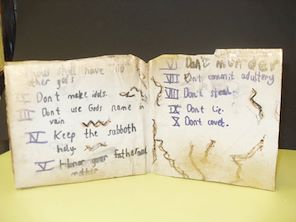 You shall have no
other gods
II Don't make idols.
III Dont use Gods name in
vain
IV Keep the sabboth
holy
V Honor your father and
mother
VI Don't murder
VII Don't commit adultery
VIII Don't steal.
IX Dont Lie.
X Dont covet.